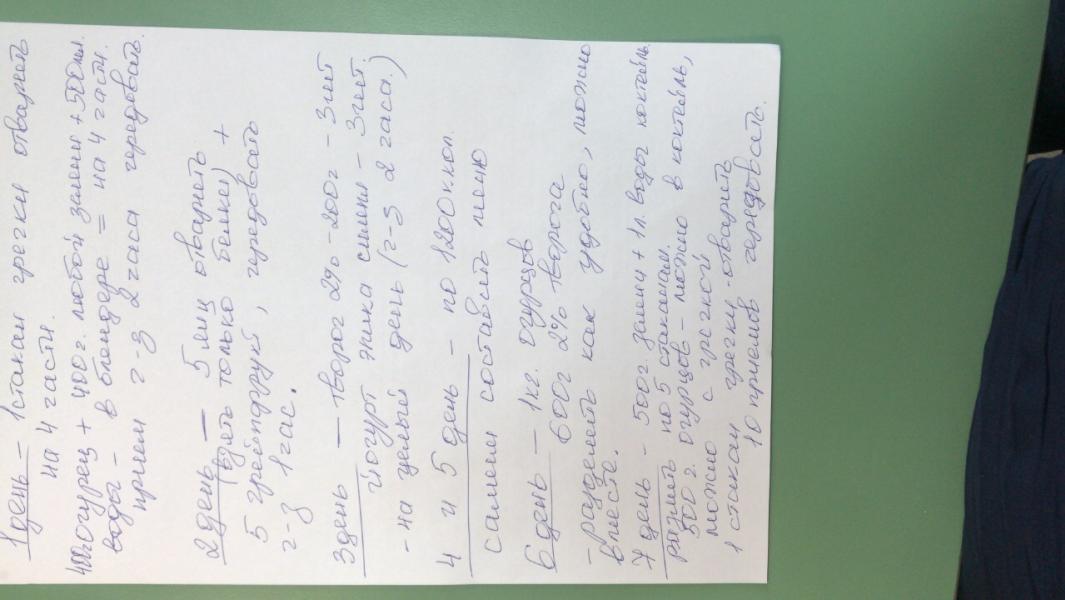 1 день – 1 стакан гречки отварить
на 4 части.
400г огурец + 400г. любой зелени + 500 мл.
воды – в блендере = на 4 части.
прием ч-з 2 часа чередовать.
2 день — 5 яиц отварить
(взять только белки) +
5 грейпфрукт, чередовать
ч-з 1 час.
3 день — творог 2% - 200г - 3 шт
йогурт эпика симпл – 3 шт.
- на целый день (ч-з 2 часа.)
4 и 5 день – по 1200 к.кал.
самим составить меню
6 день – 1 кг. огурцов
600г 2% творога
- разделить как удобно, можно
вместе.
7 день - 500г. зелени + 1л. воды коктейль
разлить по 5 стаканам.
500 г. огурцов – можно в коктейль,
можно с гречкой
1 стакан гречки - отварить
10 приемов чередовать.